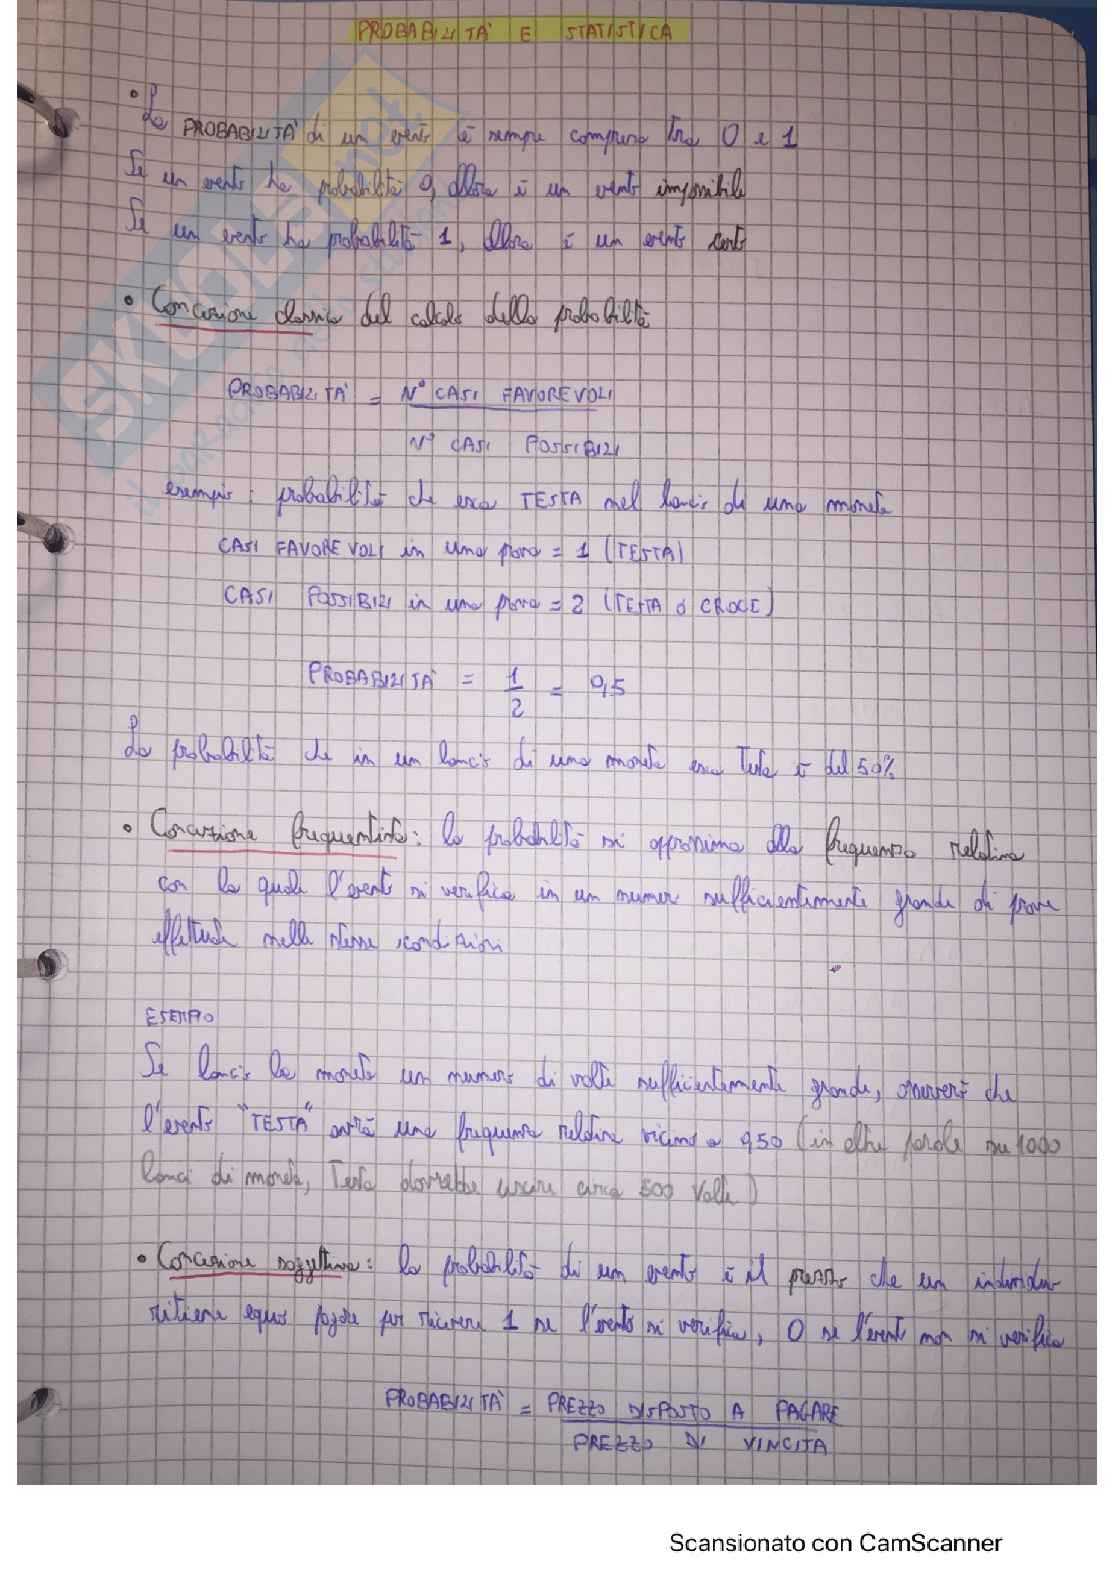 PROBABILITÀ E STATISTICA
• La PROBABILITÀ di un evento è sempre compresa tra 0 e 1
Se un evento ha probabilità 0, allora è un evento impossibile
Se un evento ha probabilità 1, allora è un evento certo
• Concezione classica del calcolo della probabilità
PROBABILITÀ = N° CASI FAVOREVOLI
N° CASI POSSIBILI
esempio: probabilità che esca TESTA nel lancio di una moneta
CASI FAVOREVOLI in una prova = 1 (TESTA)
CASI POSSIBILI in una prova = 2 (TESTA o CROCE)
PROBABILITÀ = 1/2 = 0,5
La probabilità che in un lancio di una moneta esca Testa è del 50%
• Concezione frequentista: la probabilità si approssima alla frequenza relativa
con la quale l'evento si verifica in un numero sufficientemente grande di prove
effettuate nelle stesse condizioni
ESEMPIO
Se lancio la moneta un numero di volte sufficientemente grande, osserverò che
l'evento "TESTA" avrà una frequenza relativa vicino a 0,50 (in altre parole su 1000
lanci di moneta, Testa dovrebbe uscire circa 500 volte)
• Concezione soggettiva: la probabilità di un evento è il prezzo che un individuo
ritiene equo pagare per ricevere 1 se l'evento si verifica, 0 se l'evento non si verifica
PROBABILITÀ = PREZZO DISPOSTO A PAGARE
PREZZO DI VINCITA
Scansionato con CamScanner